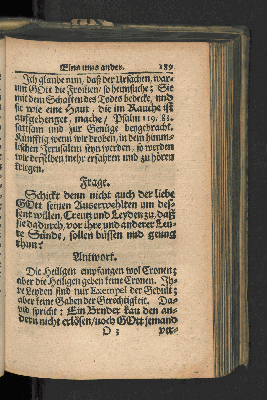 Eins ums ander. 189
Ich glaube nun, daß der Ursachen, war-
um GOtt die Frommen so heimsuche; Sie
mit dem Schatten des Todes bedecke, und
sie wie eine Haut, die im Rauche ist
auffgehenget, mache/ Psalm 119. 83.
sattsam und zur Genüge beygebracht.
Künfftig wenn wir droben, in dem himm-
lischen Jerusalem seyn werden, so werden
wir derselben mehr erfahren und zu hören
kriegen.
Frage.
Schickt denn nicht auch der liebe
GOtt seinen Auserwehlten um des-
sent willen, Creutz und Leyden zu, daß
sie dadurch, vor ihre und anderer Leu-
te Sünde, sollen büssen und genug
thun?
Antwort.
Die Heiligen empfangen wol Cronen;
aber die Heiligen geben keine Cronen. Ih-
re Leyden sind nur Exempel der Gedult;
aber keine Gaben der Gerechtigkeit. Da-
vid spricht: Ein Bruder kan den an-
dern nicht erlösen/noch GOtt jemand
O 3 ver-